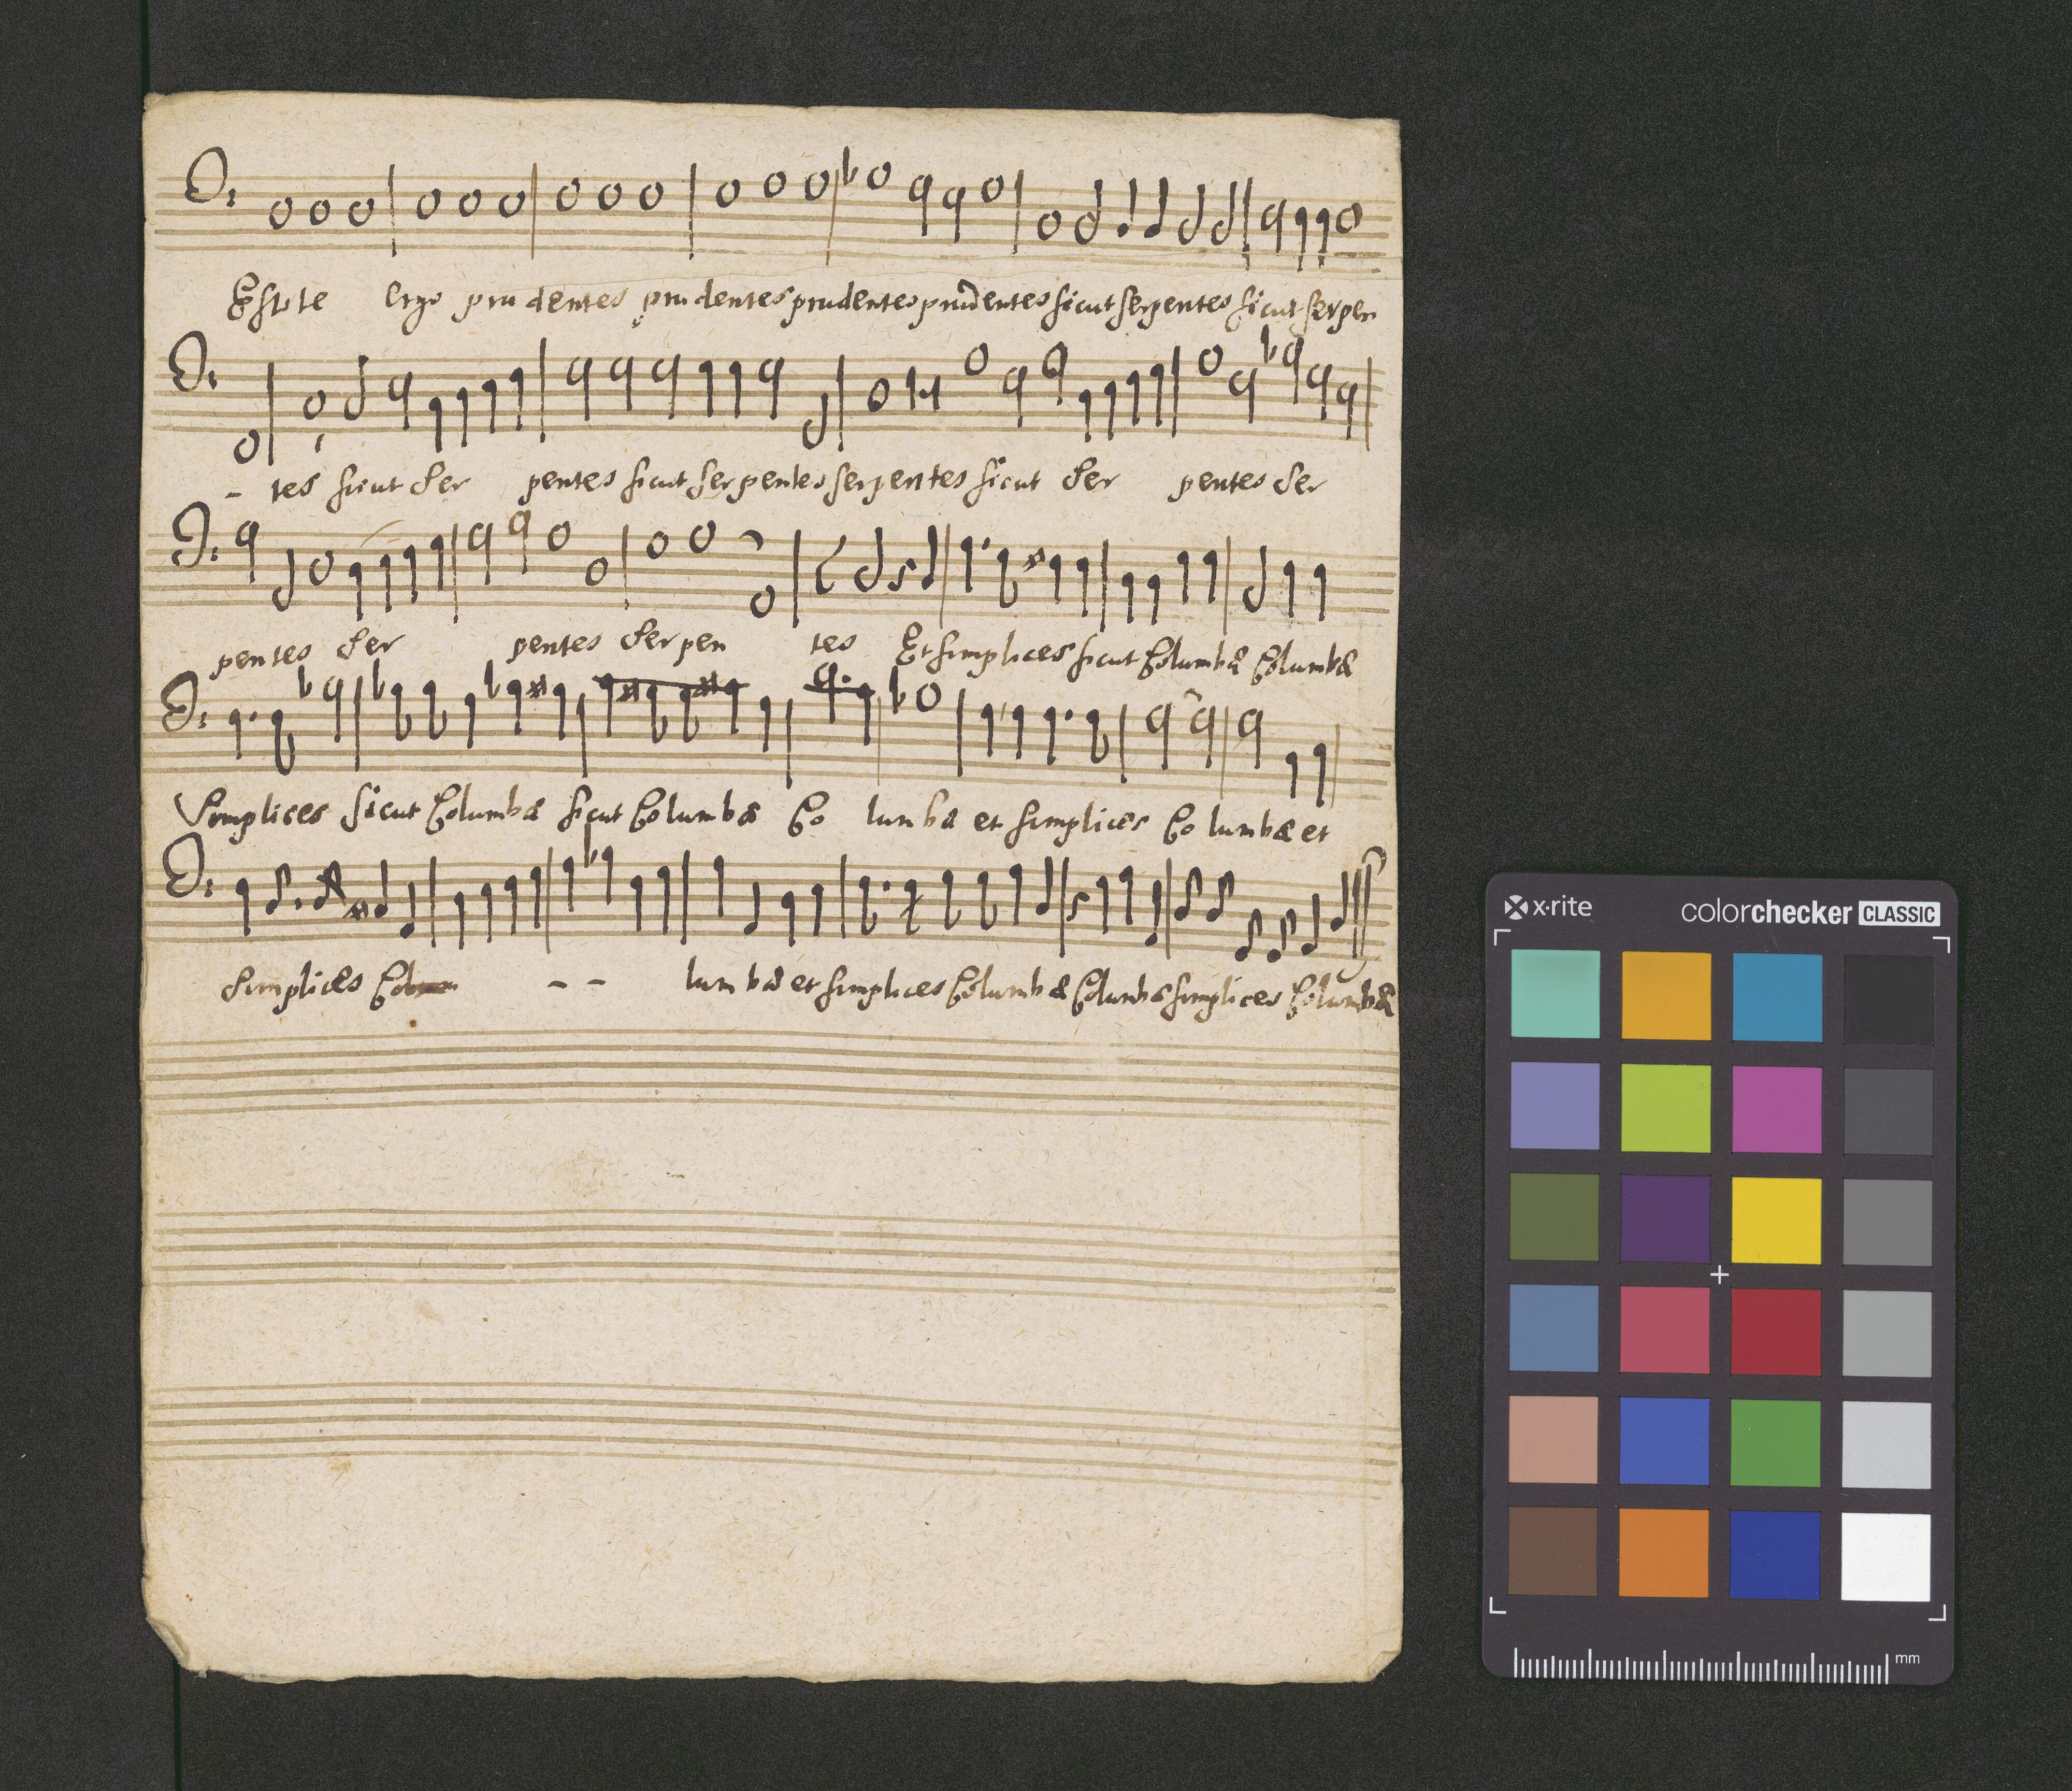 Estote ergo prudentes prudentes prudentes prudentes sicut serpentes sicut serpen
- tes sicut ser pentes sicut serpentes serpentes sicut ser pentes ser
pentes ser pentes ser pen tes Et simplices sicut Columbæ Columbæ
Simplices sicut Columbæ sicut Columbæ Co lumbæ et simplices Co lumbæ et
simplices Co - - lum bæ et simplices Columbæ Columbæ simplices Columbæ
x-rite colorchecker CLASSIC
mm